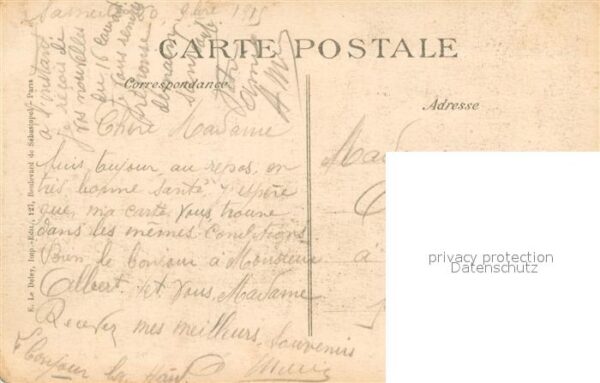 Samedi 1915
CARTE POSTALE
Correspondance
Adresse
à l'instant
je reçois de
vos nouvelles
du 16 courant
réponse
demain
sans faute
E. Le Deley, Imp.-Edit., 127, Boulevard de Sébastopol - Paris
Chère Madame
Suis toujour au repos, en
très bonne santé j'espère
que ma carte Vous trouve
dans les mêmes conditions
Bien le bonjour à Monsieur
Albert. et Vous, Madame
Recevez mes meilleurs Souvenirs
Bonjour
Mad
à
privacy protection
Datenschutz